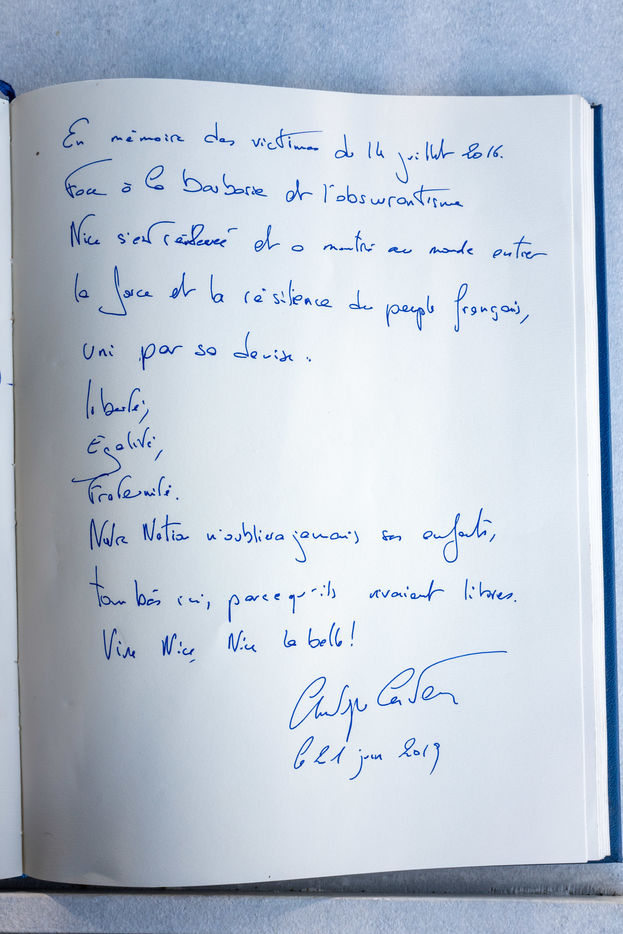 En mémoire des victimes du 14 juillet 2016.
Face à la Barbarie et l'obscurantisme
Nice s'est relevée et a montré au monde entier
la force et la résilience du peuple français,
uni par sa devise :
liberté,
Egalité,
Fraternité.
Notre Nation n'oubliera jamais ses enfants,
tombés ici, parce qu'ils vivaient libres.
Vive Nice, Nice la belle !
le 21 juin 2019